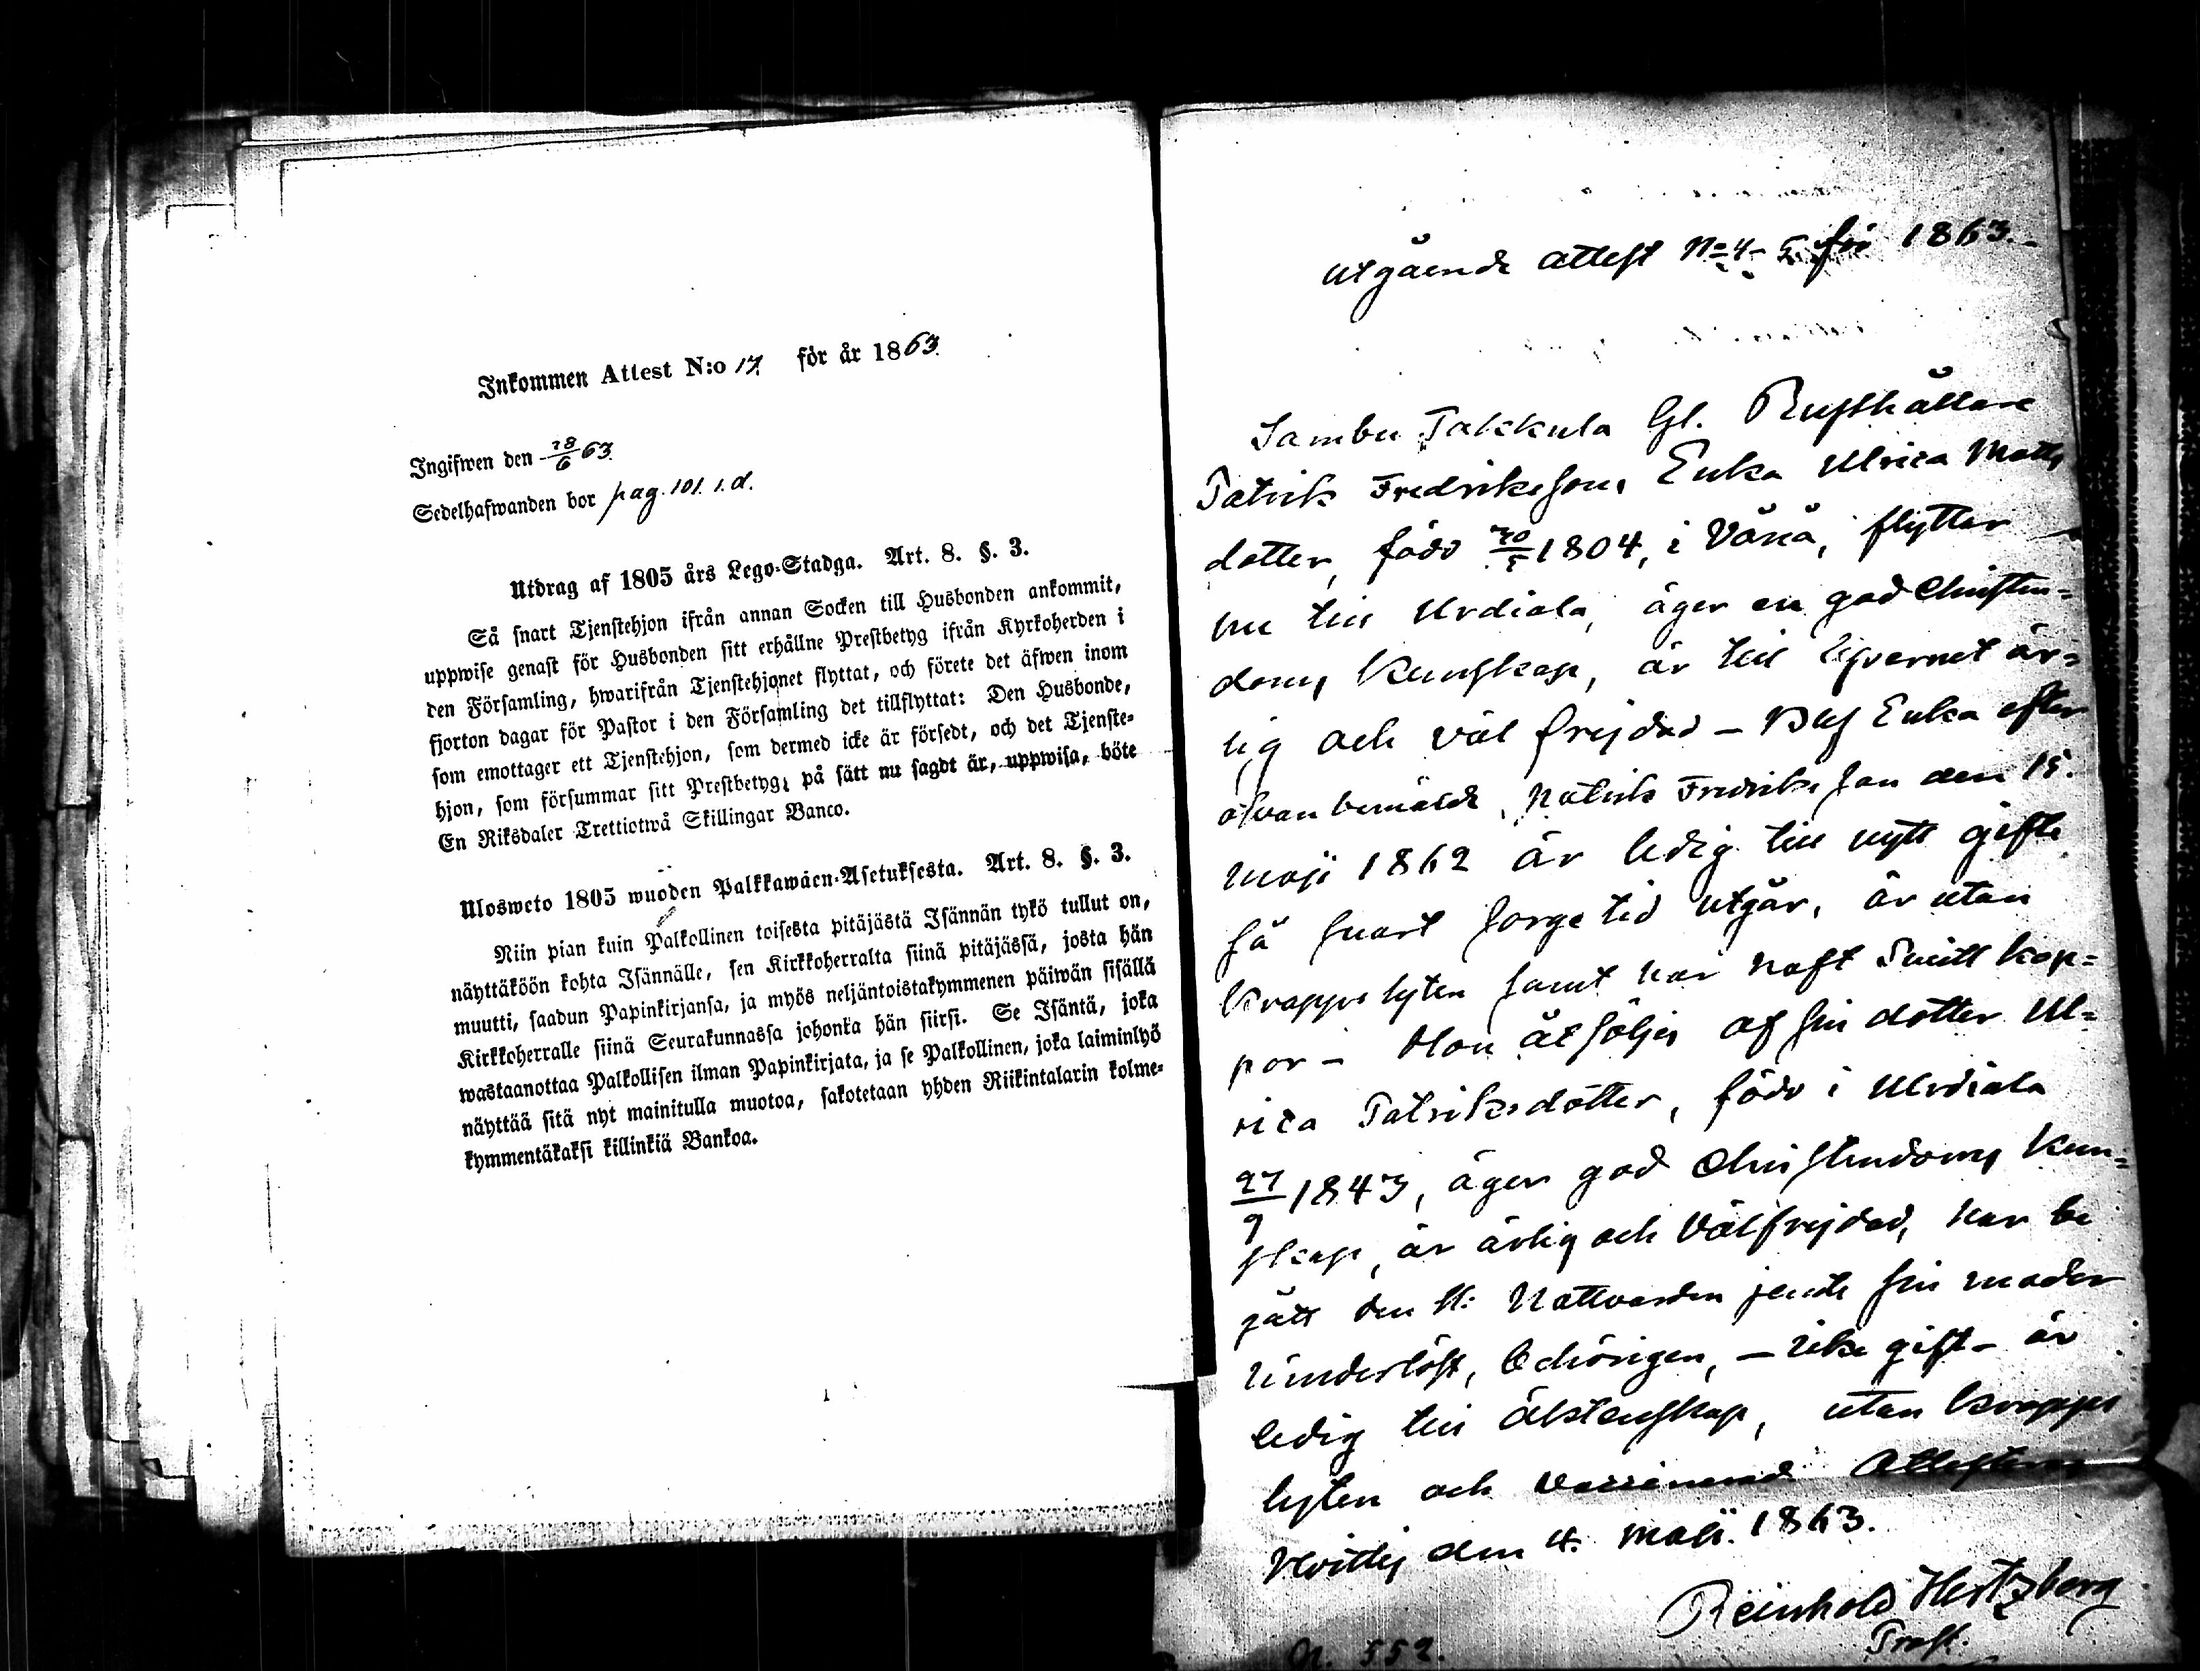 Inkommen Attest N:o 17. för år 1863.
Ingifwen den 28/6 63.
Sedelhafwanden bor pag. 101. i. d.
Utdrag af 1805 års Lego-Stadga. Art. 8. §. 3.
Så snart Tjenstehjon ifrån annan Socken till Husbonden ankommit,
uppwise genast för Husbonden sitt erhållne Prestbetyg ifrån Kyrkoherden i
den Församling, hwarifrån Tjenstehjonet flyttat, och förete det äfwen inom
fjorton dagar för Pastor i den Församling det tillflyttat: Den Husbonde,
som emottager ett Tjenstehjon, som dermed icke är försedt, och det Tjenste-
hjon, som försummar sitt Prestbetyg, på sätt nu sagdt är, uppwisa, böte
En Riksdaler Trettiotwå Skillingar Banco.
Ulosweto 1805 wuoden Palkkawäen-Asetuksesta. Art. 8. §. 3.
Niin pian kuin Palkollinen toisesta pitäjästä Isännän tykö tullut on,
näyttäköön kohta Isännälle, sen Kirkkoherralta siinä pitäjässä, josta hän
muutti, saadun Papinkirjansa, ja myös neljäntoistakymmenen päiwän sisällä
Kirkkoherralle siinä Seurakunnassa johonka hän siirsi. Se Isäntä, joka
wastaanottaa Palkollisen ilman Papinkirjata, ja se Palkollinen, joka laiminlyö
näyttää sitä nyt mainitulla muotoa, sakotetaan yhden Riikintalarin kolme-
kymmentäkaksi killinkiä Bankoa.
utgående attest No 4-5 för 1863.-
Sambu Takkula Gl. Rusthållare
Patrik Fredriksons Enka Ulrica Matts
dotter, född 1804, i , flyttar
nu till Urdiala, äger en god Christen-
doms Kunskap, är till lefvernet är-
lig och väl frejdad - Enka efter
ofvanbemälde Patrik Fredrikson den 15.
maji 1862 är ledig till nytt gifte
så snart sorgetid utgår, är utan
kroppslyten samt har haft Smittkop-
por - Hon åtföljes af sin dotter Ul-
rica Patriksdotter, född i Urdiala
27/9 1843, äger god Christendoms Kun-
skap, är ärlig och välfrejdad, har be
gått den H: Nattvarden jemte sin moder
hinderlöst, behörigen, - icke gift - är
ledig till äktenskap, utan kropps
lyten och vaccinerad Attesteras
Hvittis den 4. Maii. 1863.
Reinhold Hertzberg
Prost.
552.